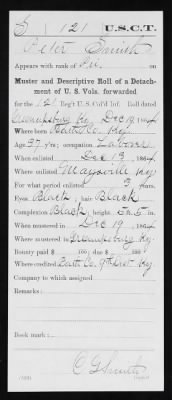 S 121 U.S.C.T.
Peter Smith
Appears with rank of Pvt. on
Muster and Descriptive Roll of a Detach-
ment of U. S. Vols. forwarded
for the 121 Reg't U.S. Col'd Inf. Roll dated
Greenupsburg Ky. Dec 19, 1864
Where born Bath Co. Ky.
Age 37 y'rs; occupation Laborer
When enlisted Dec 13, 1864
Where enlisted Maysville Ky
For what period enlisted 3 years.
Eyes Black; hair Black
Complexion Black; height 5 ft. 5 in.
When mustered in Dec 19, 1864
Where mustered in Greenupsburg Ky.
Bounty paid $ 100; due $ 100
Where credited Bath Co. 9th Dist Ky
Company to which assigned
Remarks:
Book mark:
C G Smith